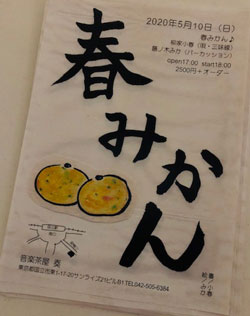 2020年5月10日（日）
春みかん♪
柳家小春（唄・三味線）
藤ノ木みか（パーカッション）
open17:00 start18:00
2500円＋オーダー
春みかん
音楽茶屋 奏
東京都国立市東1-17-20サンライズ21ビルB1 TEL042-505-6384